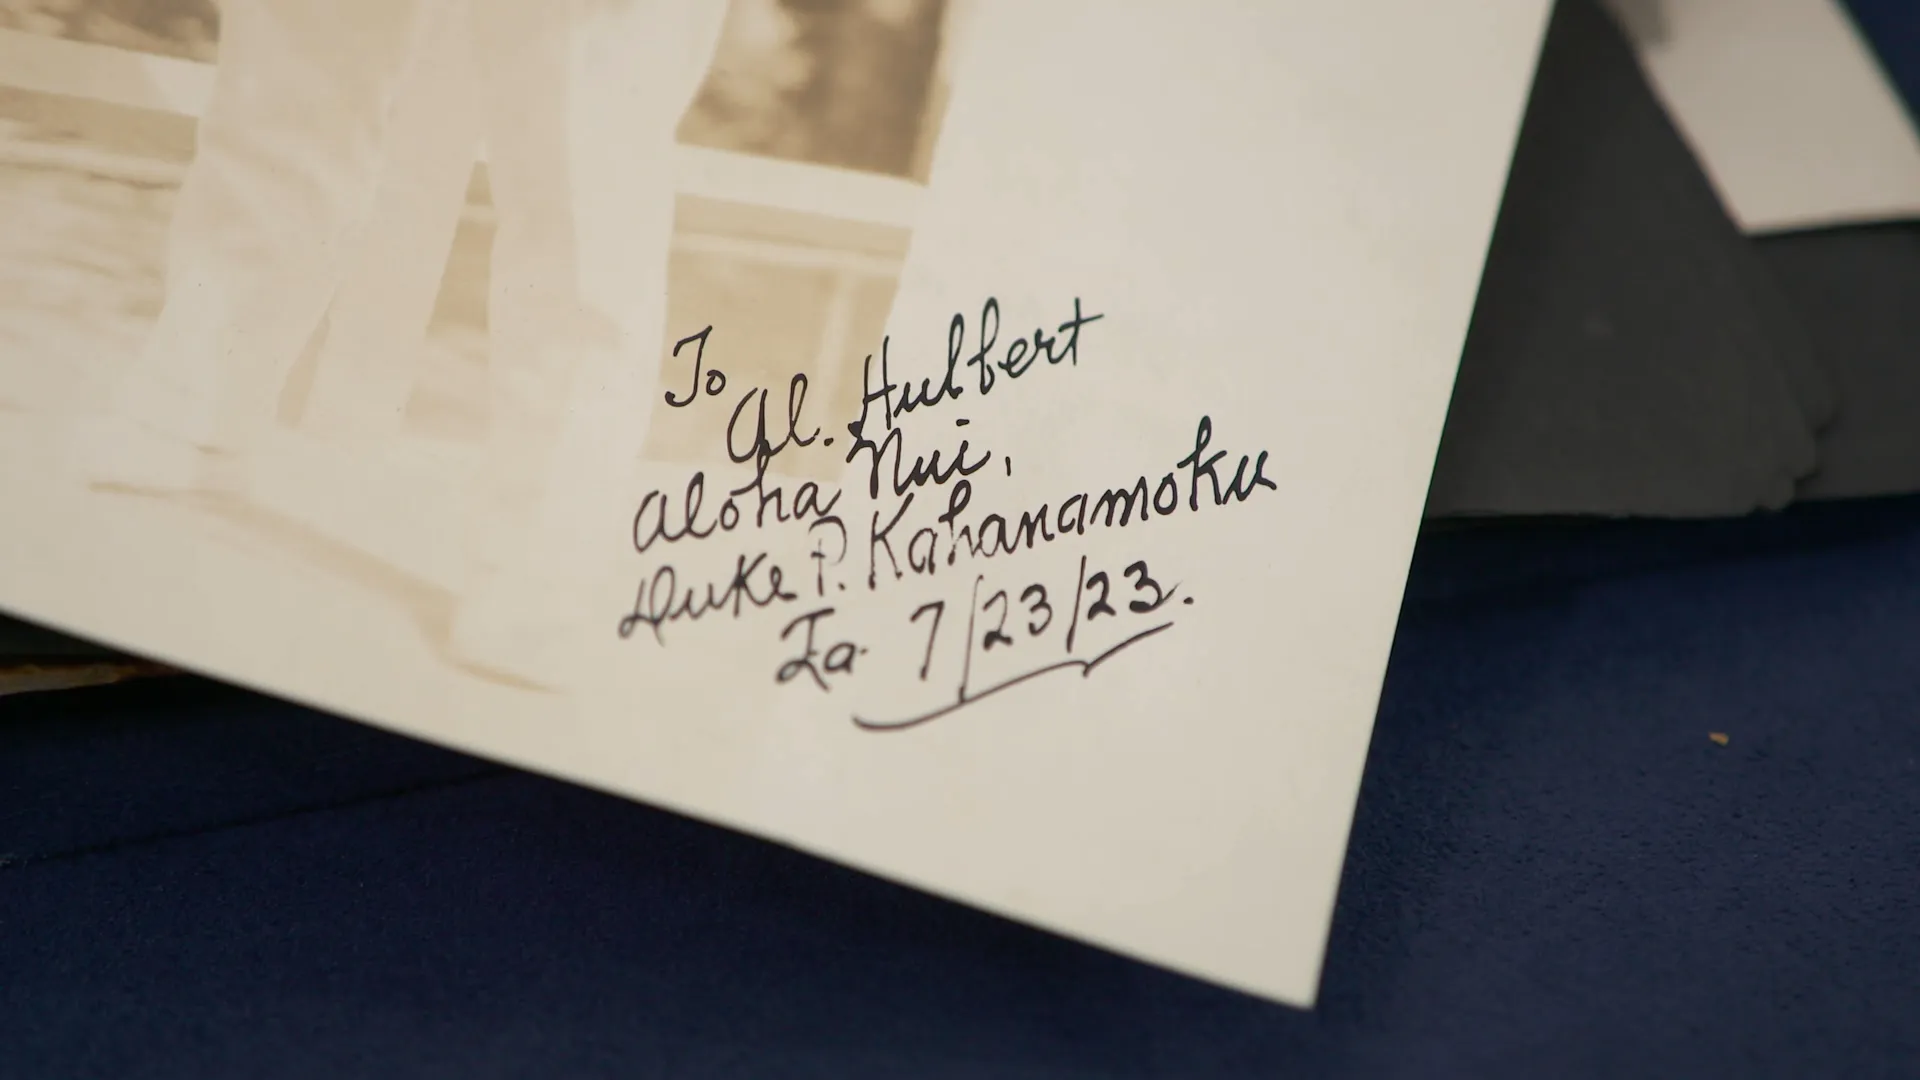 To
Al. Hulbert
Aloha Nui,
Duke P. Kahanamoku
La 7/23/23.